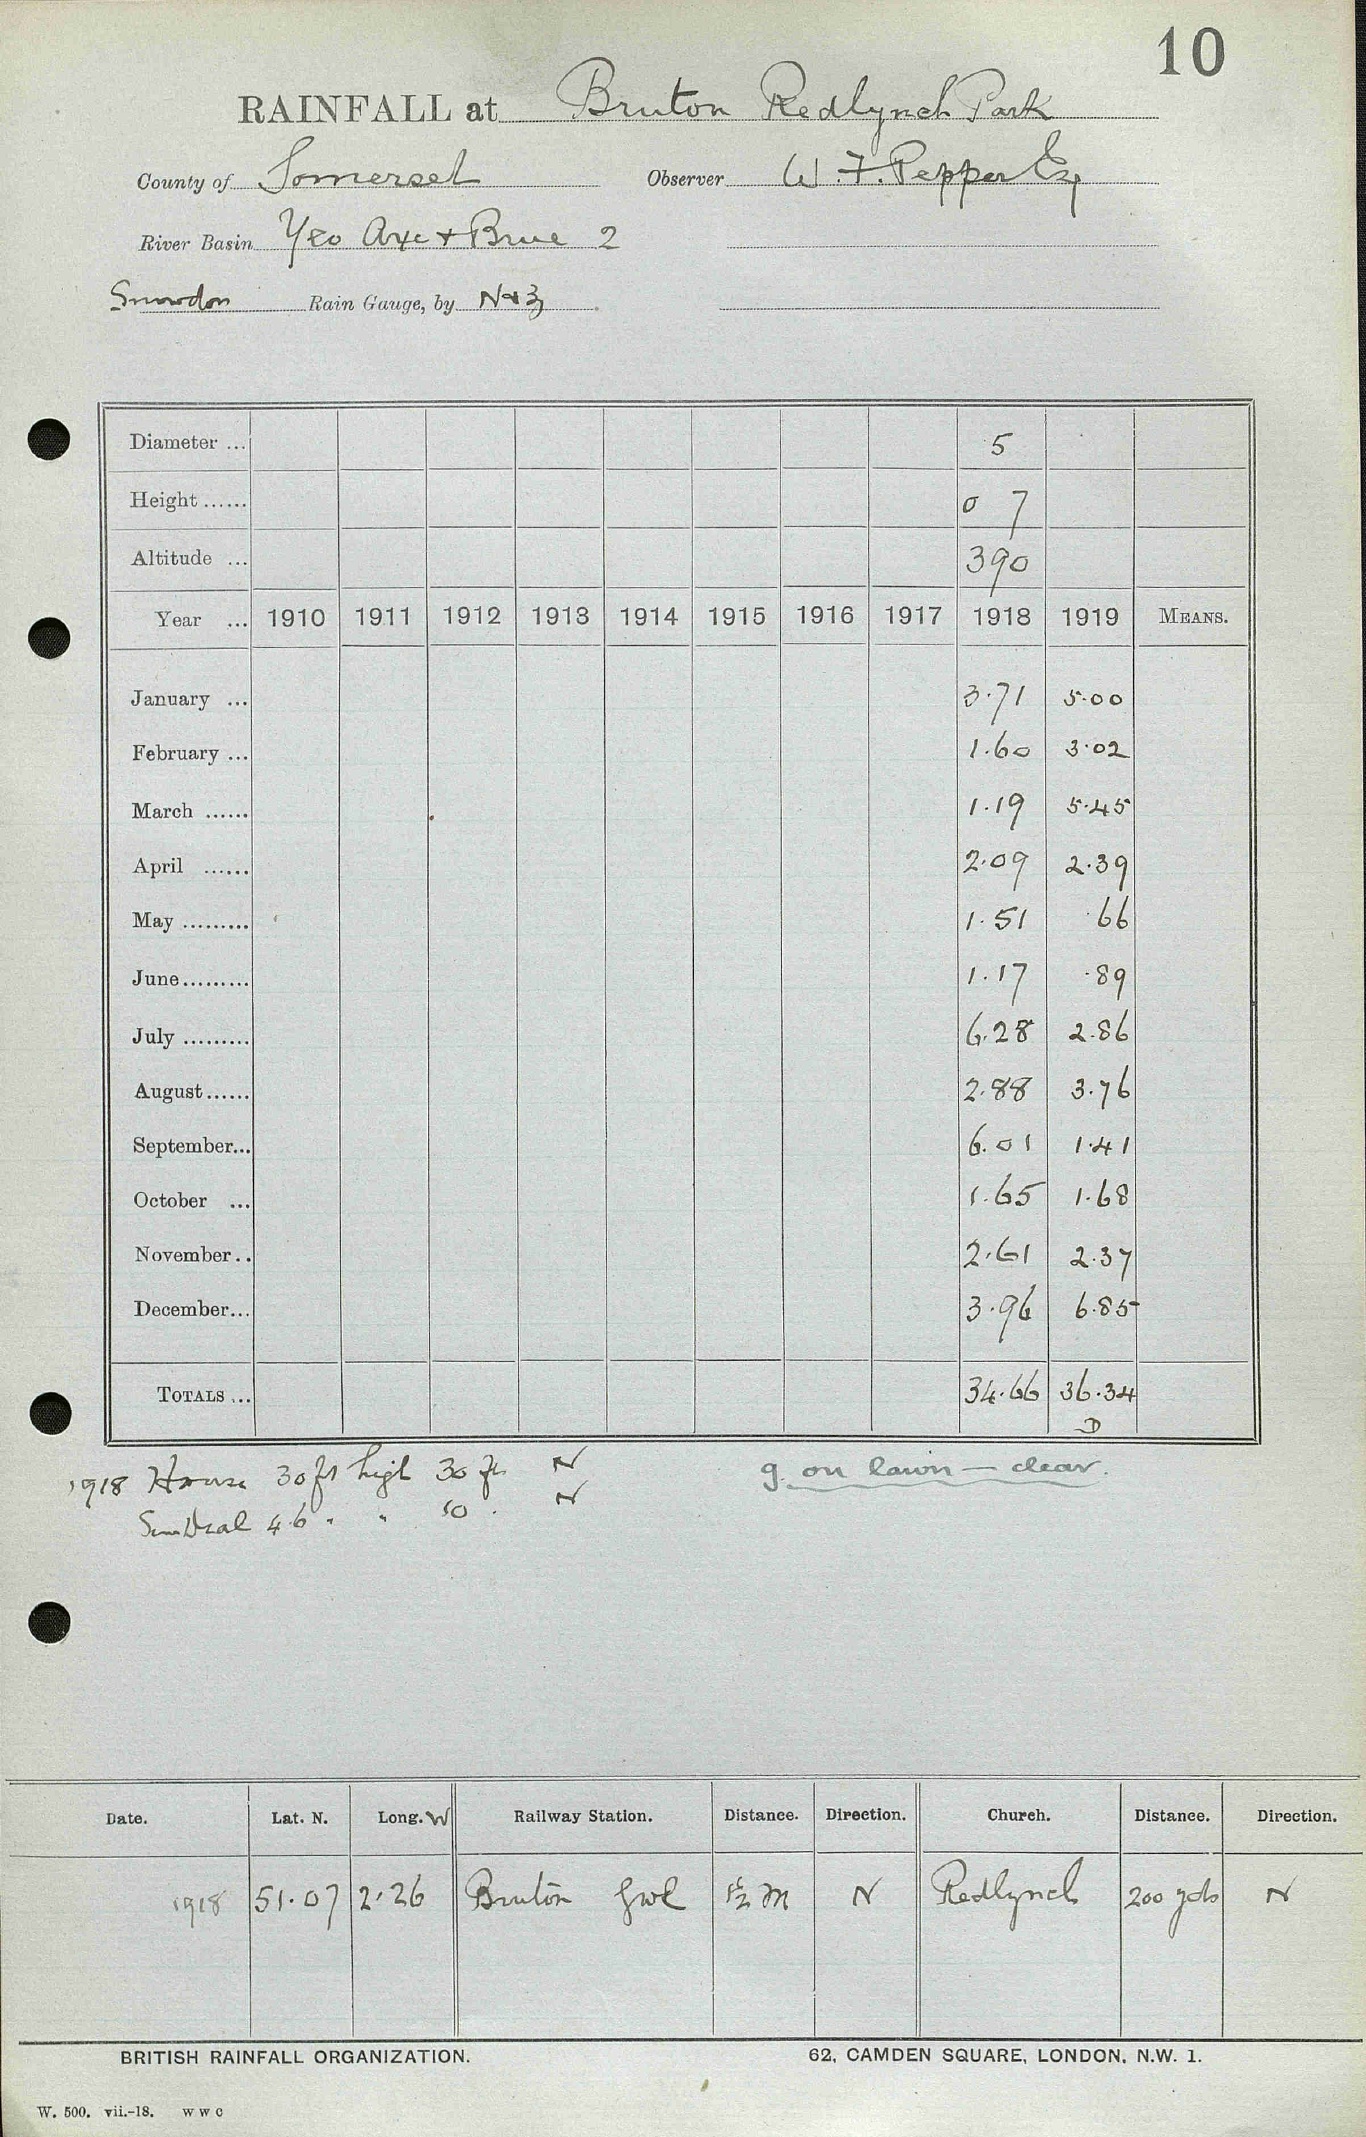 10
RAINFALL at Bruton Redlynch Park
County of Somerset Observer W. F. Pepper Esq
River Basin Yeo Axe + Brue 2
Snowdon Rain Gauge, by N+Z
Diameter ... 5
Height ...... 0 7
Altitude ... 390
Year ... 1910 1911 1912 1913 1914 1915 1916 1917 1918 1919 MEANS.
January ... 3.71 5.00
February ... 1.60 3.02
March ...... 1.19 5.45
April ...... 2.09 2.39
May ......... 1.51 .66
June ......... 1.17 .89
July ......... 6.28 2.86
August ...... 2.88 3.76
September... 6.01 1.41
October ... 1.65 1.68
November.. 2.61 2.37
December... 3.96 6.85
TOTALS ... 34.66 36.34
D
1918 House 30 ft high 30 ft N
Sun Dial 4.6 " " 10 . N
g. on lawn — clear.
Date. Lat. N. Long. W Railway Station. Distance. Direction. Church. Distance. Direction.
1918 51.07 2.26 Bruton GWR M N Redlynch 200 yds N
BRITISH RAINFALL ORGANIZATION. 62, CAMDEN SQUARE, LONDON, N.W. 1.
W. 500. vii.-18. W W C